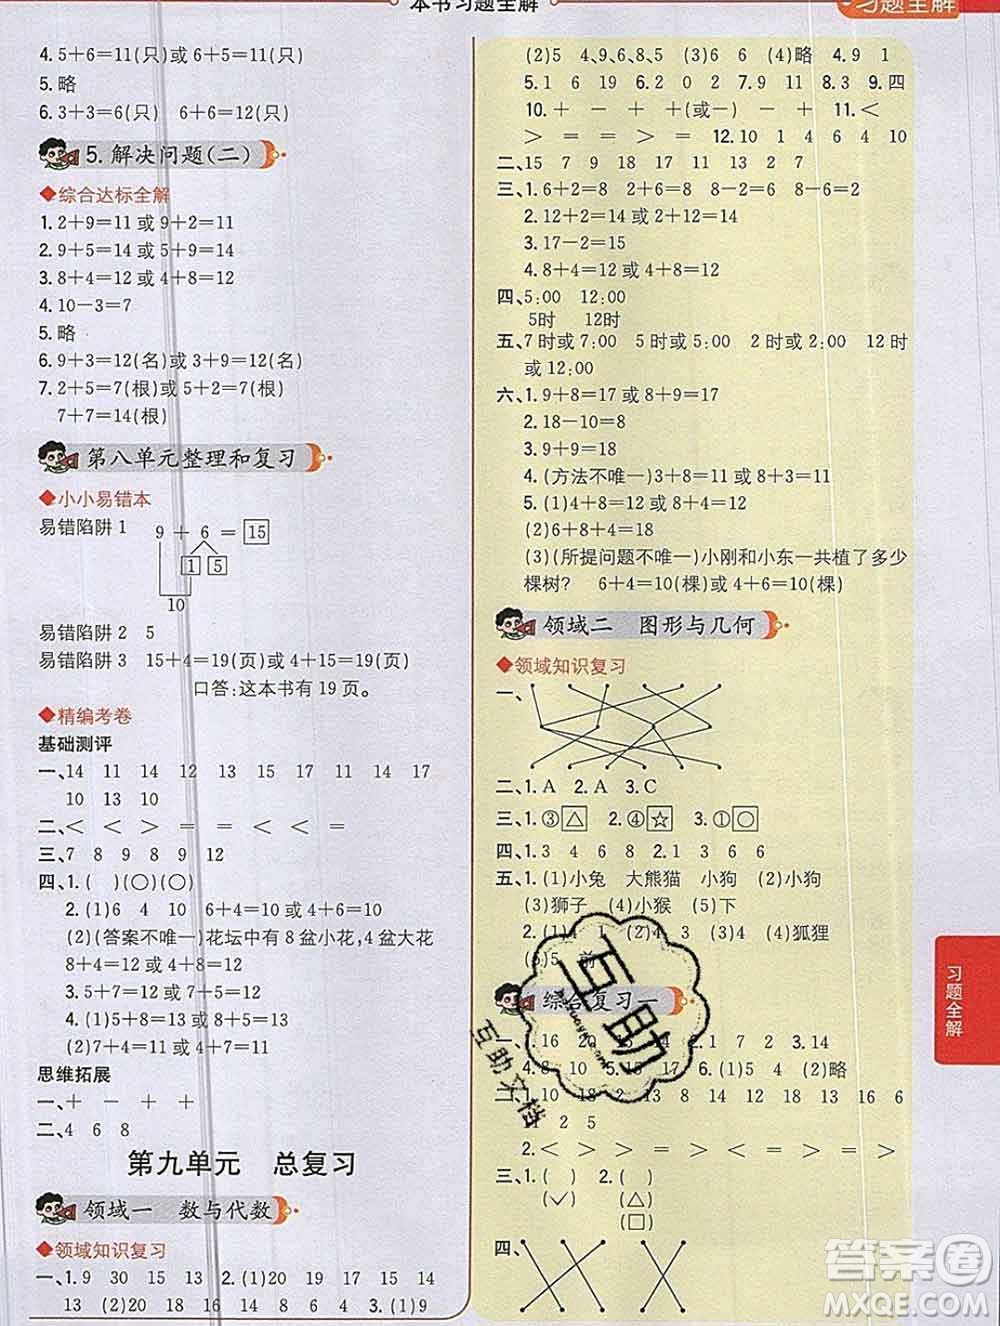 本书习题全解
习题全解
4. 5+6=11(只)或 6+5=11(只)
5. 略
6. 3+3=6(只) 6+6=12(只)
5. 解决问题(二)
◆综合达标全解
1. 2+9=11 或 9+2=11
2. 9+5=14 或 5+9=14
3. 8+4=12 或 4+8=12
4. 10-3=7
5. 略
6. 9+3=12(名)或 3+9=12(名)
7. 2+5=7(根)或 5+2=7(根)
7+7=14(根)
第八单元整理和复习
◆小小易错本
易错陷阱 1
9 + 6 = 15
1 5
10
易错陷阱 2 5
易错陷阱 3 15+4=19(页)或 4+15=19(页)
口答:这本书有 19 页。
◆精编考卷
基础测评
一、14 11 14 12 13 15 11 14 17
10 13 10
二、< < > = = < < =
三、7 8 9 8 9 12
四、1. ( ) (○)(○)
2. (1)6 4 10 6+4=10 或 4+6=10
(2)(答案不唯一)花坛中有 8 盆小花,4 盆大花
8+4=12 或 4+8=12
3. 5+9=14 或 9+5=14
4. (1)5+8=13 或 8+5=13
(2)7+4=11 或 4+7=11
思维拓展
一、- + + +
二、4 6 8
第九单元 总复习
领域一 数与代数
◆领域知识复习
一、1. 9 30 15 13 2. (1)20 17 15 14
13 (2)20 18 15 14 12 3. (1)9
(2)5 4、9、6、8、5 (3)6 6 (4)略 4. 9 1
5. 1 6 19 6. 2 0 2 7. 9 11 8. 3 9. 四
10. + - + +(或-) - + 11. <
> = = > = 12. 10 1 4 6 4 10
二、15 7 9 18 17 11 13 2 7
三、1. 6+2=8 2+6=8 8-2=6 8-6=2
2. 12+2=14 或 2+12=14
3. 17-2=15
4. 8+4=12 或 4+8=12
四、5:00 12:00
5时 12时
五、7 时或 7:00 5 时或 5:00 2 时或 2:00 12 时
或 12:00
六、1. 9+8=17 或 8+9=17
2. 18-10=8
3. 9+9=18
4. (方法不唯一)3+8=11 或 8+3=11
5. (1)4+8=12 或 8+4=12
(2)6+8+4=18
(3)(所提问题不唯一)小刚和小东一共植了多少
棵树? 6+4=10(棵)或 4+6=10(棵)
领域二 图形与几何
◆领域知识复习
一、
二、1. A 2. A 3. C
三、1. ③△ 2. ④☆ 3. ①○
四、1. 3 4 6 8 2. 1 3 6 6
五、1. (1)小兔 大熊猫 小狗 (2)小狗
(3)狮子 (4)小猴 (5)下
2. (1) 1 (2)4 3 (3)7 (4)狐狸
5 前
综合复习一
一、1. 16 20 4 2. 1 7 2 3. 14
4. 8 10 5. 15 17 6. (1)5 4 (2)略
二、1. 10 18 2 13 17 15 7 8 6
11 2 5
2. < > = > < > < > >
三、1. ( ) 2. ( )
(✓) (△)
(□)
四、
习题全解
互助
互助文档
答案圈
MXQE.COM